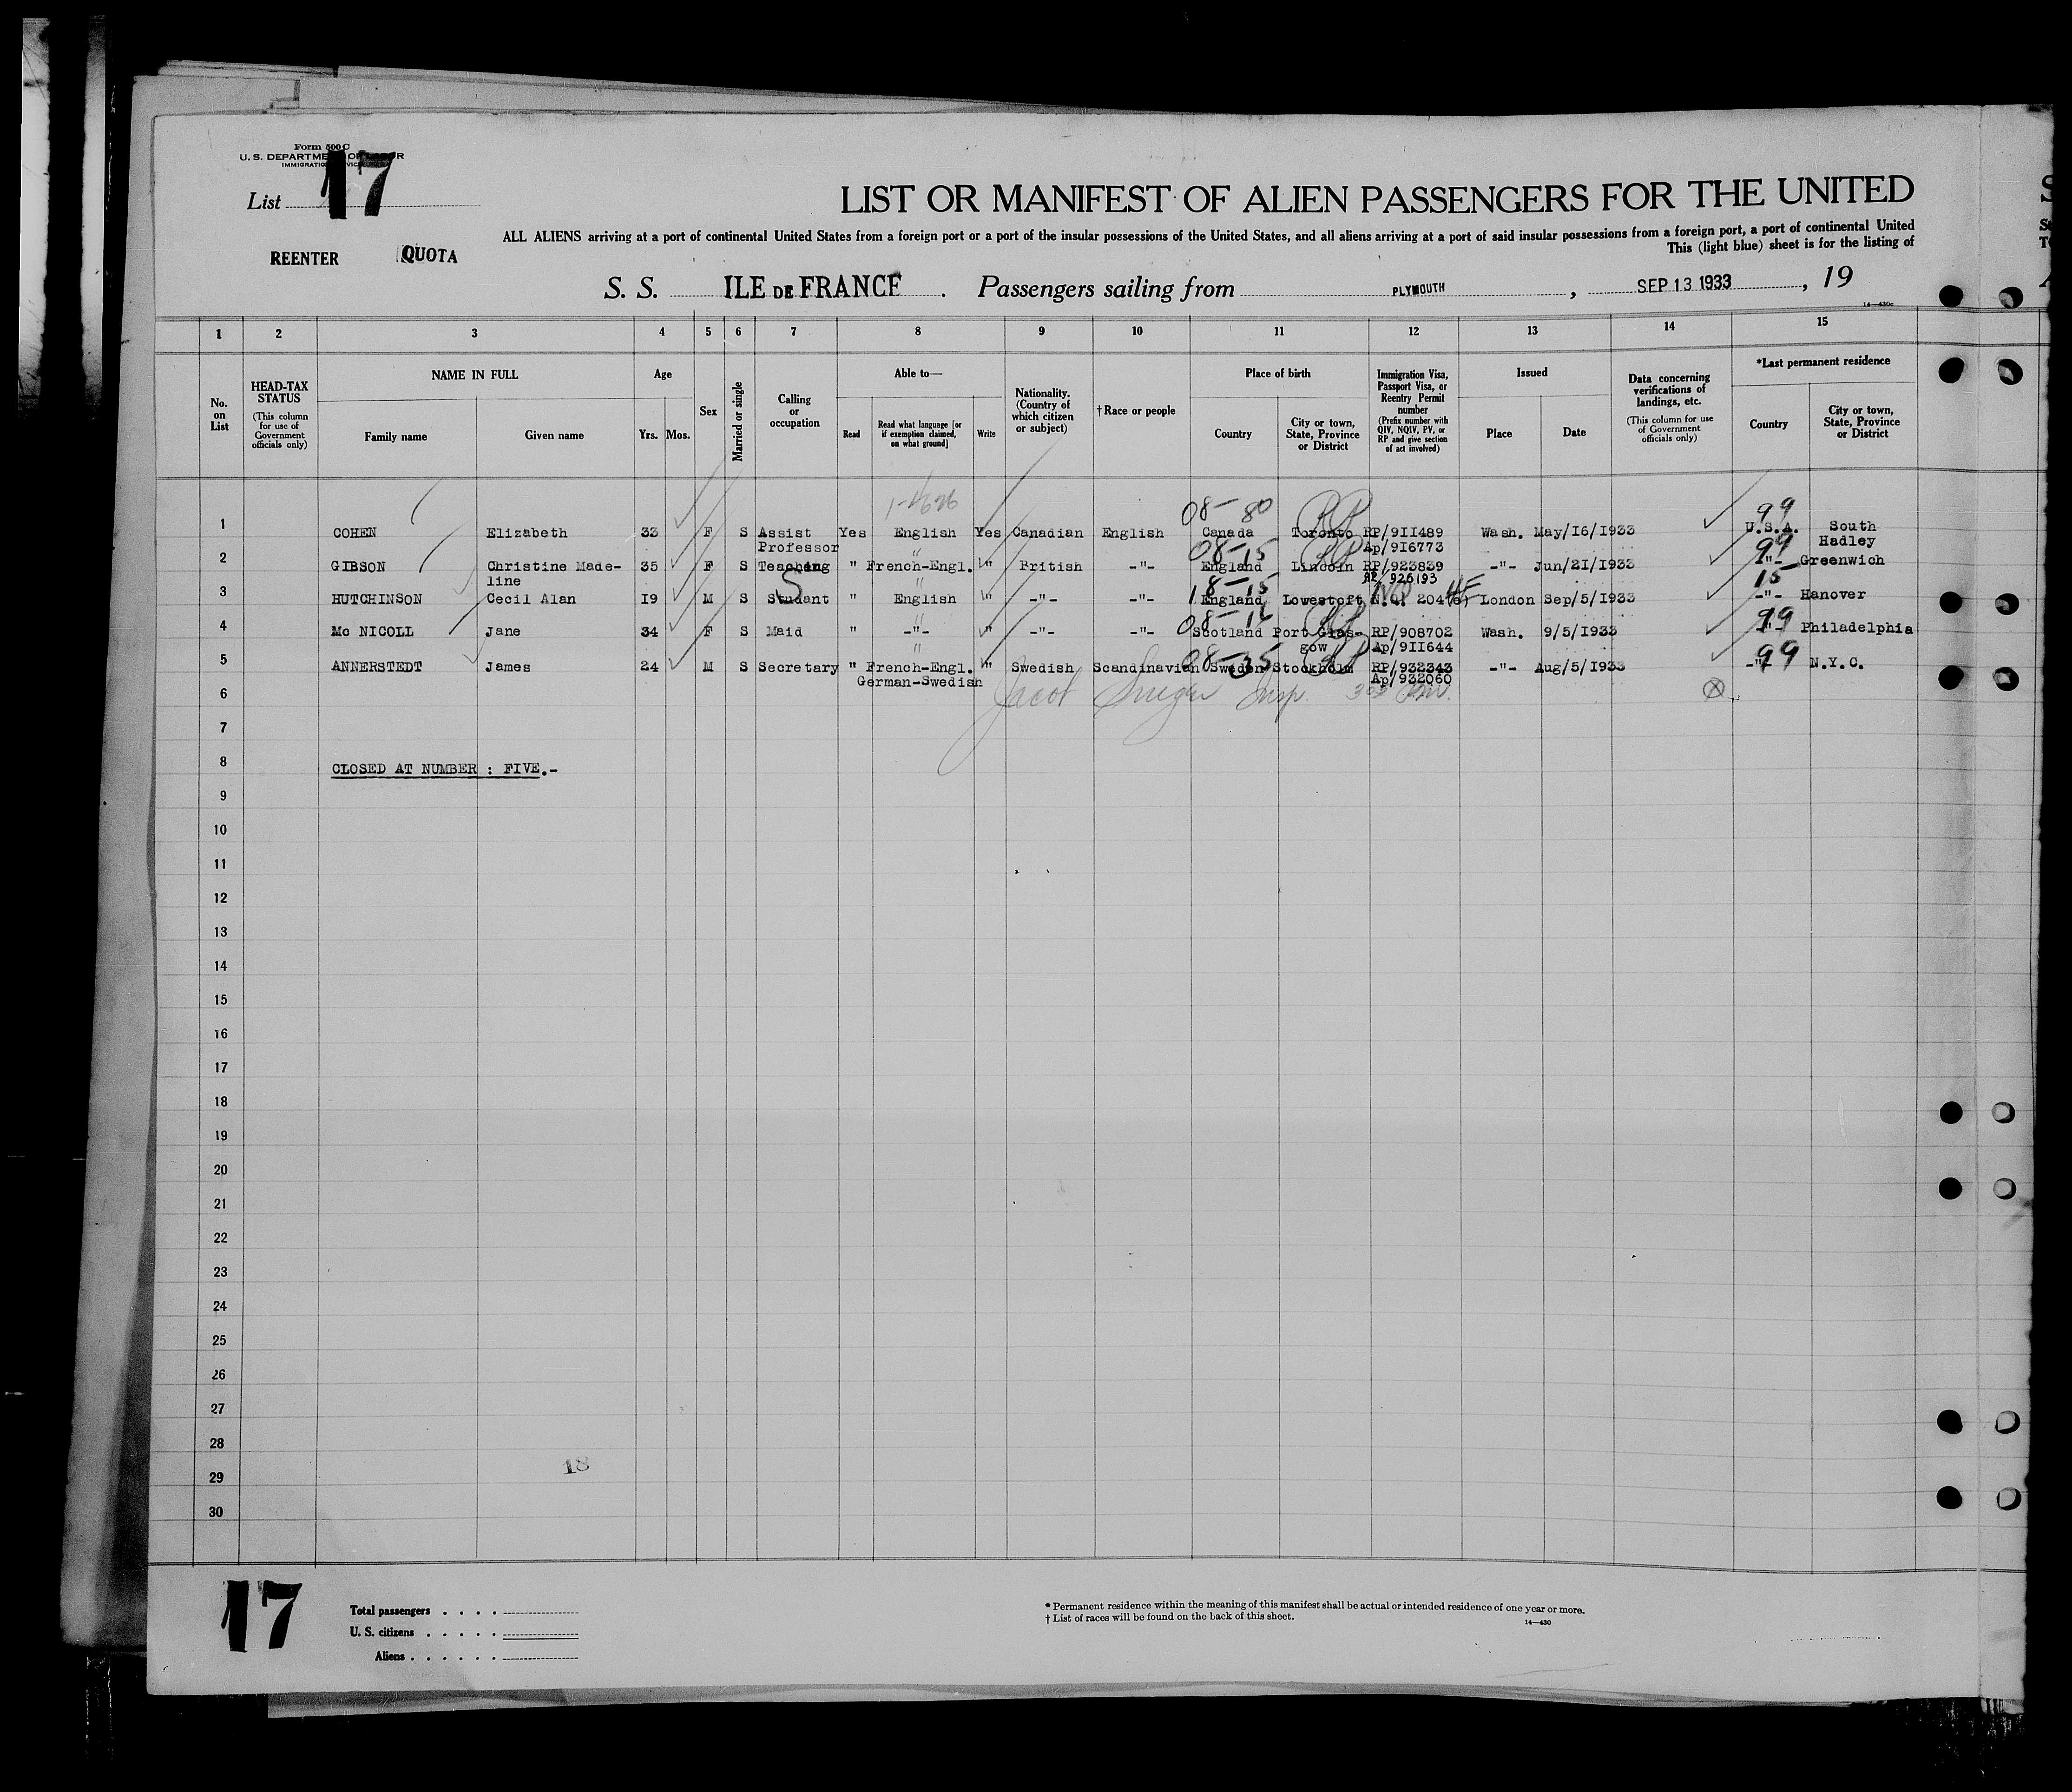 Form 500 C
U. S. DEPARTMENT OF LABOR
IMMIGRATION SERVICE
List 17
LIST OR MANIFEST OF ALIEN PASSENGERS FOR THE UNITED
ALL ALIENS arriving at a port of continental United States from a foreign port or a port of the insular possessions of the United States, and all aliens arriving at a port of said insular possessions from a foreign port, a port of continental United
This (light blue) sheet is for the listing of
REENTER QUOTA
S. S. ILE DE FRANCE . Passengers sailing from PLYMOUTH , SEP 13 1933 , 19
14—430c
1 2 3 4 5 6 7 8 9 10 11 12 13 14 15
No. on List
HEAD-TAX STATUS (This column for use of Government officials only)
NAME IN FULL
Family name Given name
Age
Yrs. Mos.
Sex
Married or single
Calling or occupation
Able to—
Read Read what language [or if exemption claimed, on what ground] Write
Nationality. (Country of which citizen or subject)
†Race or people
Place of birth
Country City or town, State, Province or District
Immigration Visa, Passport Visa, or Reentry Permit number (Prefix number with QIV, NQIV, PV, or RP and give section of act involved)
Issued
Place Date
Data concerning verifications of landings, etc. (This column for use of Government officials only)
*Last permanent residence
Country City or town, State, Province or District
08-80 RP 99
1 COHEN Elizabeth 33 F S Assist Professor Yes English Yes Canadian English Canada Toronto RP/9II489 Ap/9I6773 Wash. May/I6/I933 U.S.A. South Hadley
08-15 99
2 GIBSON Christine Made-line 35 F S Teaching " French-Engl. " British -"- England Lincoln RP/923839 AP/926193 -"- Jun/2I/I933 -"- Greenwich
18-15 15
3 HUTCHINSON Cecil Alan I9 M S Student " English " -"- -"- England Lowestoft N.Q. 204 London Sep/5/I933 -"- Hanover
99
4 Mc NICOLL Jane 34 F S Maid " -"- " -"- -"- Scotland Port Glas-gow RP/908702 Ap/9II644 Wash. 9/5/I933 -"- Philadelphia
08-35 99
5 ANNERSTEDT James 24 M S Secretary " French-Engl. German-Swedish " Swedish Scandinavian Sweden Stockholm RP/932343 Ap/932060 -"- Aug/5/I933 -"- N.Y.C.
6
7
8 CLOSED AT NUMBER : FIVE.-
9
10
11
12
13
14
15
16
17
18
19
20
21
22
23
24
25
26
27
28
18
29
30
17
Total passengers . . . .
U. S. citizens . . . . .
Aliens . . . . . .
* Permanent residence within the meaning of this manifest shall be actual or intended residence of one year or more.
† List of races will be found on the back of this sheet.
14—430